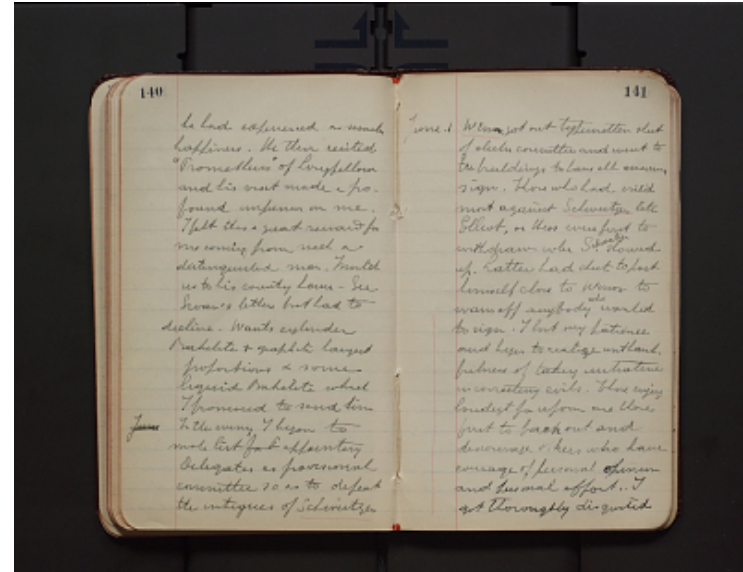 140
he had experienced so much
happiness. He then recited
"Prometheus" of Longfellow
and his met made a pro-
found impression on me.
I felt this a great reward for
me coming from such a
distinguished man. Invited
us to his country house - See
Swan's letter but had to
decline. Wants cylinder
Bakelite & graphite largest
proportions & some
liquid Bakelite which
I promised to send him
June
In the evening I began to
make list for appointing
Delegates as provisional
committee so as to defeat
the intrigues of Schweitzer
141
June 1
Wemon got out typewritten sheet
of committee and went to
the buildings to have all
sign. Those who had cried
most against Schweitzer
Elliot, or thos were first to
withdraw when Schweitzer showed
up. Latter had cheek to post
himself close to to
warn off anybody who wanted
to sign. I lost my patience
and begin to realize unthank-
fulness of taking initiative
in correcting evils. Those crying
loudest for reform are those
first to back out and
discourage others who have
courage of personal opinion
and personal effort. I
got thoroughly disgusted